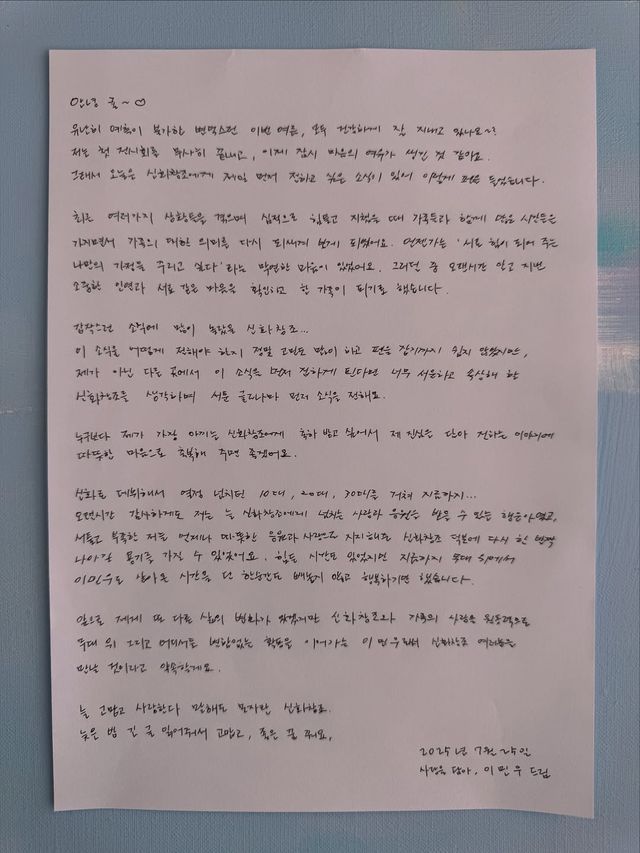 안녕 귤~♡
유난히 예측이 불가한 변덕스런 이번 여름, 모두 건강하게 잘 지내고 있나요~?
저는 첫 전시회를 무사히 끝내고, 이제 잠시 마음의 여유가 생긴 것 같아요.
그래서 오늘은 신화창조에게 제일 먼저 전하고 싶은 소식이 있어 이렇게 펜을 들었습니다.
최근 여러가지 상황들을 겪으며 심적으로 힘들고 지쳤을 때 가족들과 함께 많은 시간들을
가지면서 가족의 대한 의미를 다시 되새기게 되었어요. 언젠가는 '서로 힘이 되어 주는
나만의 가정을 꾸리고 싶다'라는 막연한 마음이 있었어요. 그러던 중 오랜시간 알고 지낸
소중한 인연과 서로 같은 마음을 확인하고 한 가족이 되기로 했습니다.
갑작스런 소식에 많이 놀랐을 신화창조...
이 소식을 어떻게 전해야 하지 정말 고민도 많이 하고 펜을 잡기까지 쉽지 않았지만,
제가 아닌 다른 곳에서 이 소식을 먼저 전하게 된다면 너무 서운하고 속상해 할
신화창조를 생각하며 서툰 글이나마 먼저 소식을 전해요.
누구보다 제가 가장 아끼는 신화창조에게 축하 받고 싶어서 제 진심을 담아 전하는 이야기에
따뜻한 마음으로 축복해 주면 좋겠어요.
신화로 데뷔해서 열정 넘치던 10대, 20대, 30대를 거쳐 지금까지...
오랜시간 감사하게도 저는 늘 신화창조에게 넘치는 사랑과 응원을 받을 수 있는 행운아였고,
서툴고 부족한 저를 언제나 따뜻한 응원과 사랑으로 지지해준 신화창조 덕분에 다시 한 발짝
나아갈 용기를 가질 수 있었어요. 힘든 시간도 있었지만 지금까지 무대 위에서
이민우로 살아온 시간을 단 한순간도 빼놓지 않고 행복하기만 했습니다.
앞으로 제게 또 다른 삶의 변화가 있겠지만 신화창조와 가족의 사랑을 원동력으로
무대 위 그리고 어디서든 변함없는 활동을 이어가는 이민우로서 신화창조 여러분을
만날 것이라고 약속할게요.
늘 고맙고 사랑한다 말해도 모자란 신화창조.
늦은 밤 긴 글 읽어줘서 고맙고, 좋은 꿈 꿔요.
2025년 7월 25일
사랑을 담아, 이민우 드림